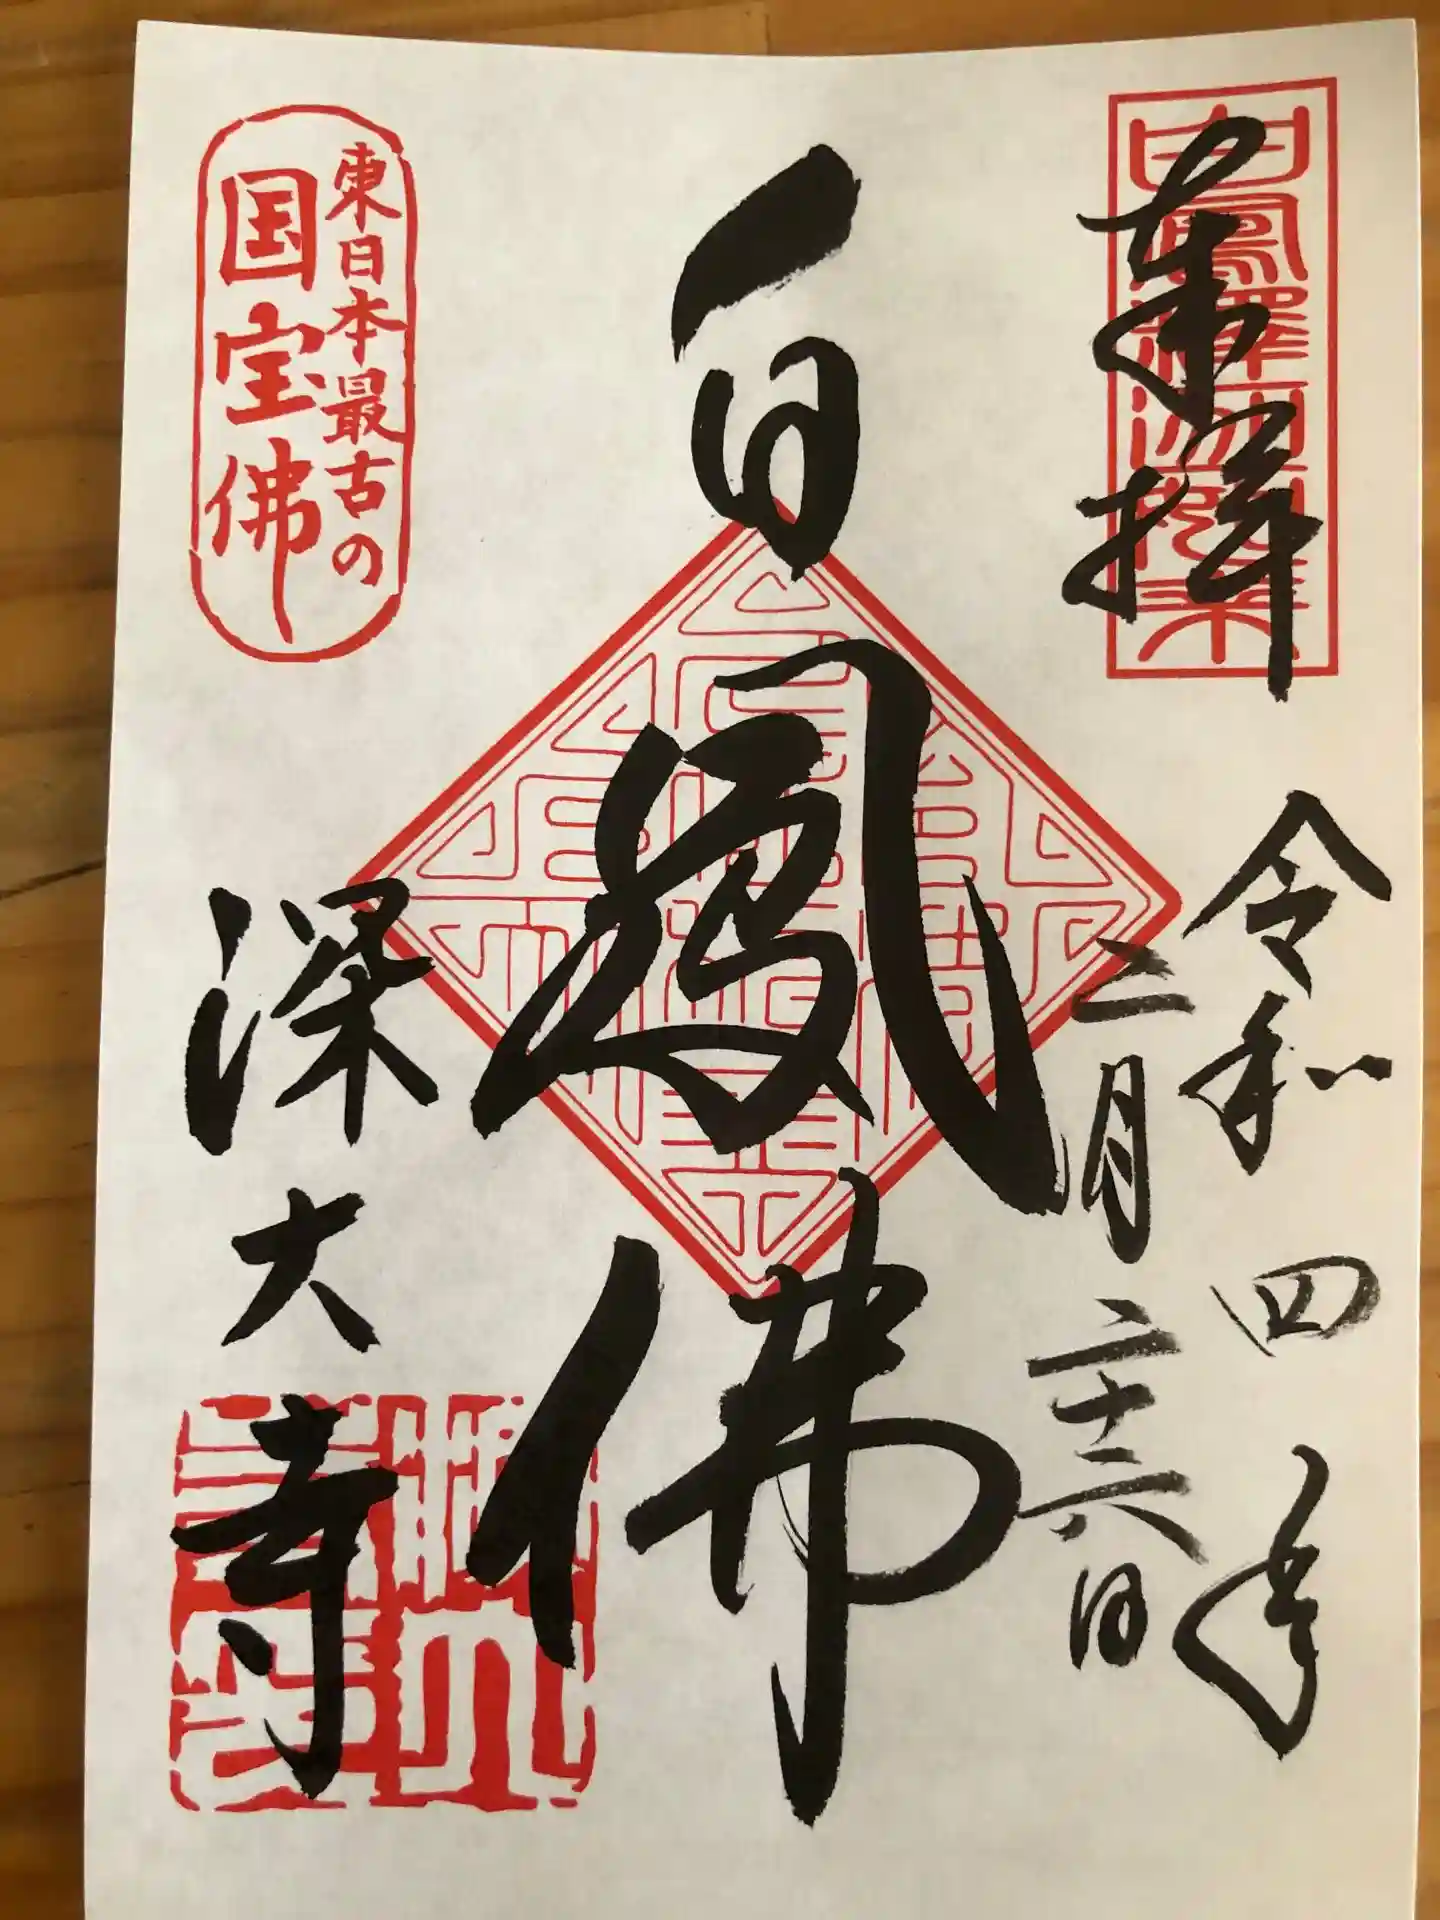 奉拝
白鳳釋迦如来
令和四年
二月二十六日
白鳳佛
東日本最古の
国宝佛
深大寺